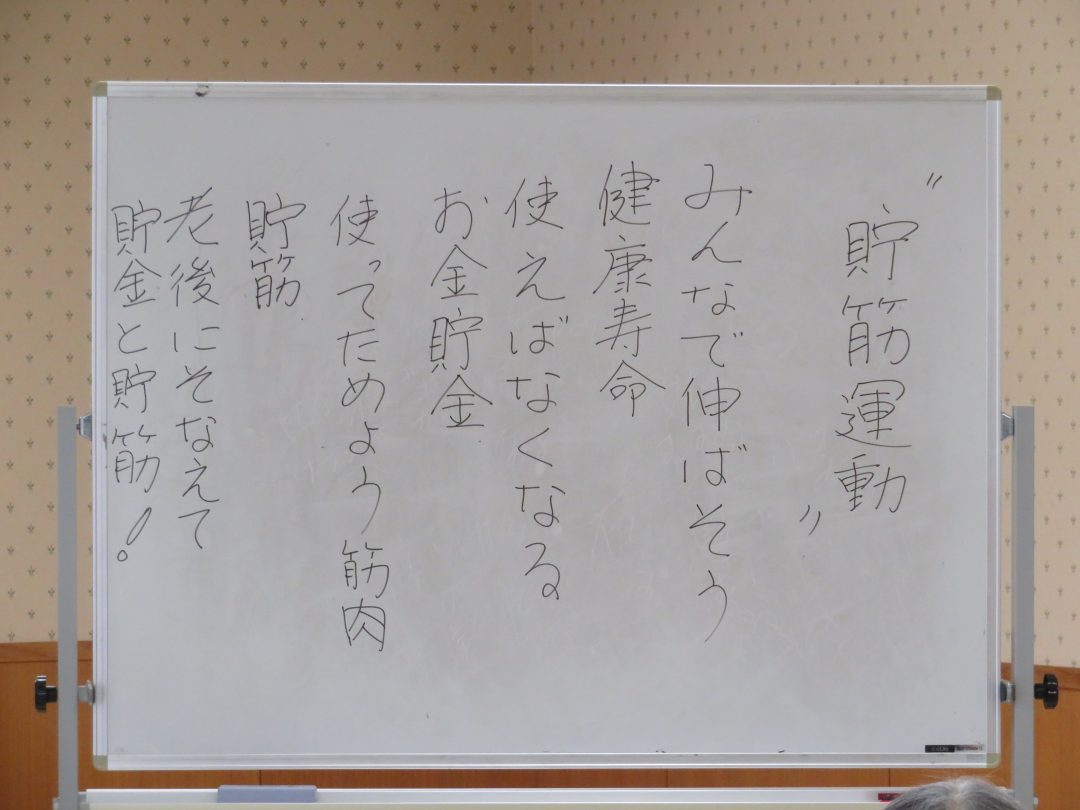 〃貯筋運動〃
みんなで伸ばそう
健康寿命
使えばなくなる
お金貯金
使ってためよう筋肉
貯筋
老後にそなえて
貯金と貯筋！